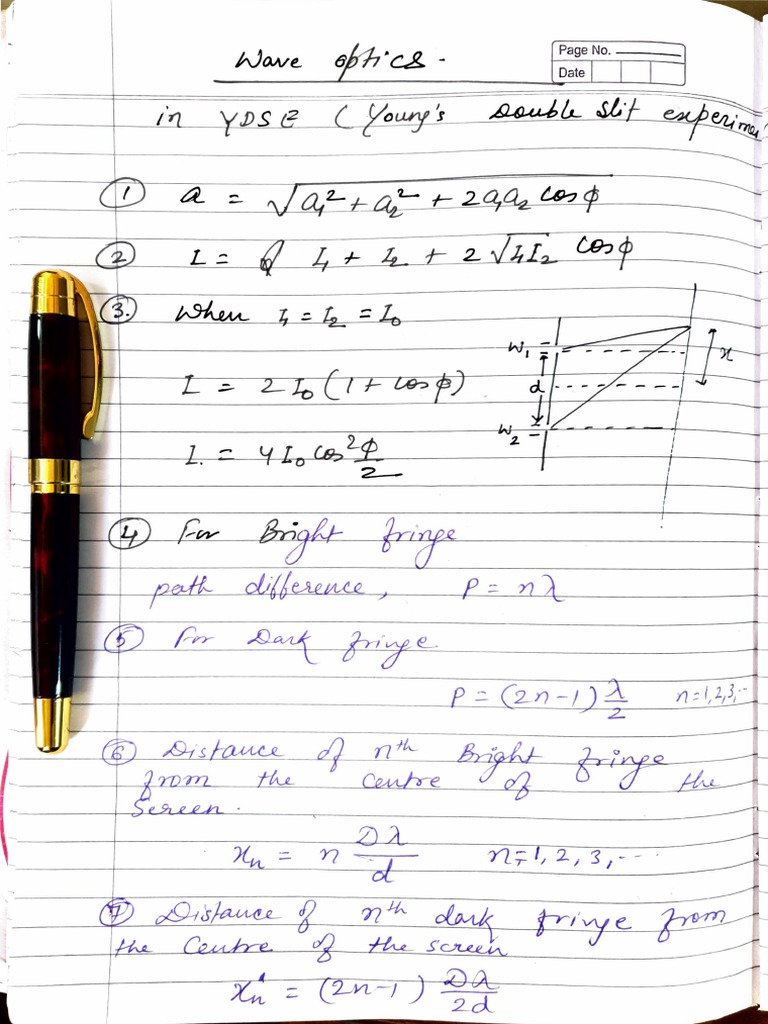 Wave optics -
Page No.
Date
in YDSE (Young's Double Slit experime
① a = √(a₁² + a₂² + 2a₁a₂ cosϕ)
② I = I₁ + I₂ + 2 √(I₁I₂) cosϕ
③. When I₁ = I₂ = I₀
I = 2 I₀ (1 + cosϕ)
I. = 4 I₀ cos² ϕ/2
W₁
d
W₂
x
④ For Bright fringe
path difference, P = nλ
⑤ For Dark fringe.
P = (2n-1) λ/2 n=1,2,3,--
⑥ Distance of nth Bright fringe
from the centre of the
Screen.
xₙ = n Dλ/d n=1, 2, 3, ----
⑦ Distance of nth dark fringe from
the Centre of the screen
xₙ' = (2n-1) Dλ/2d